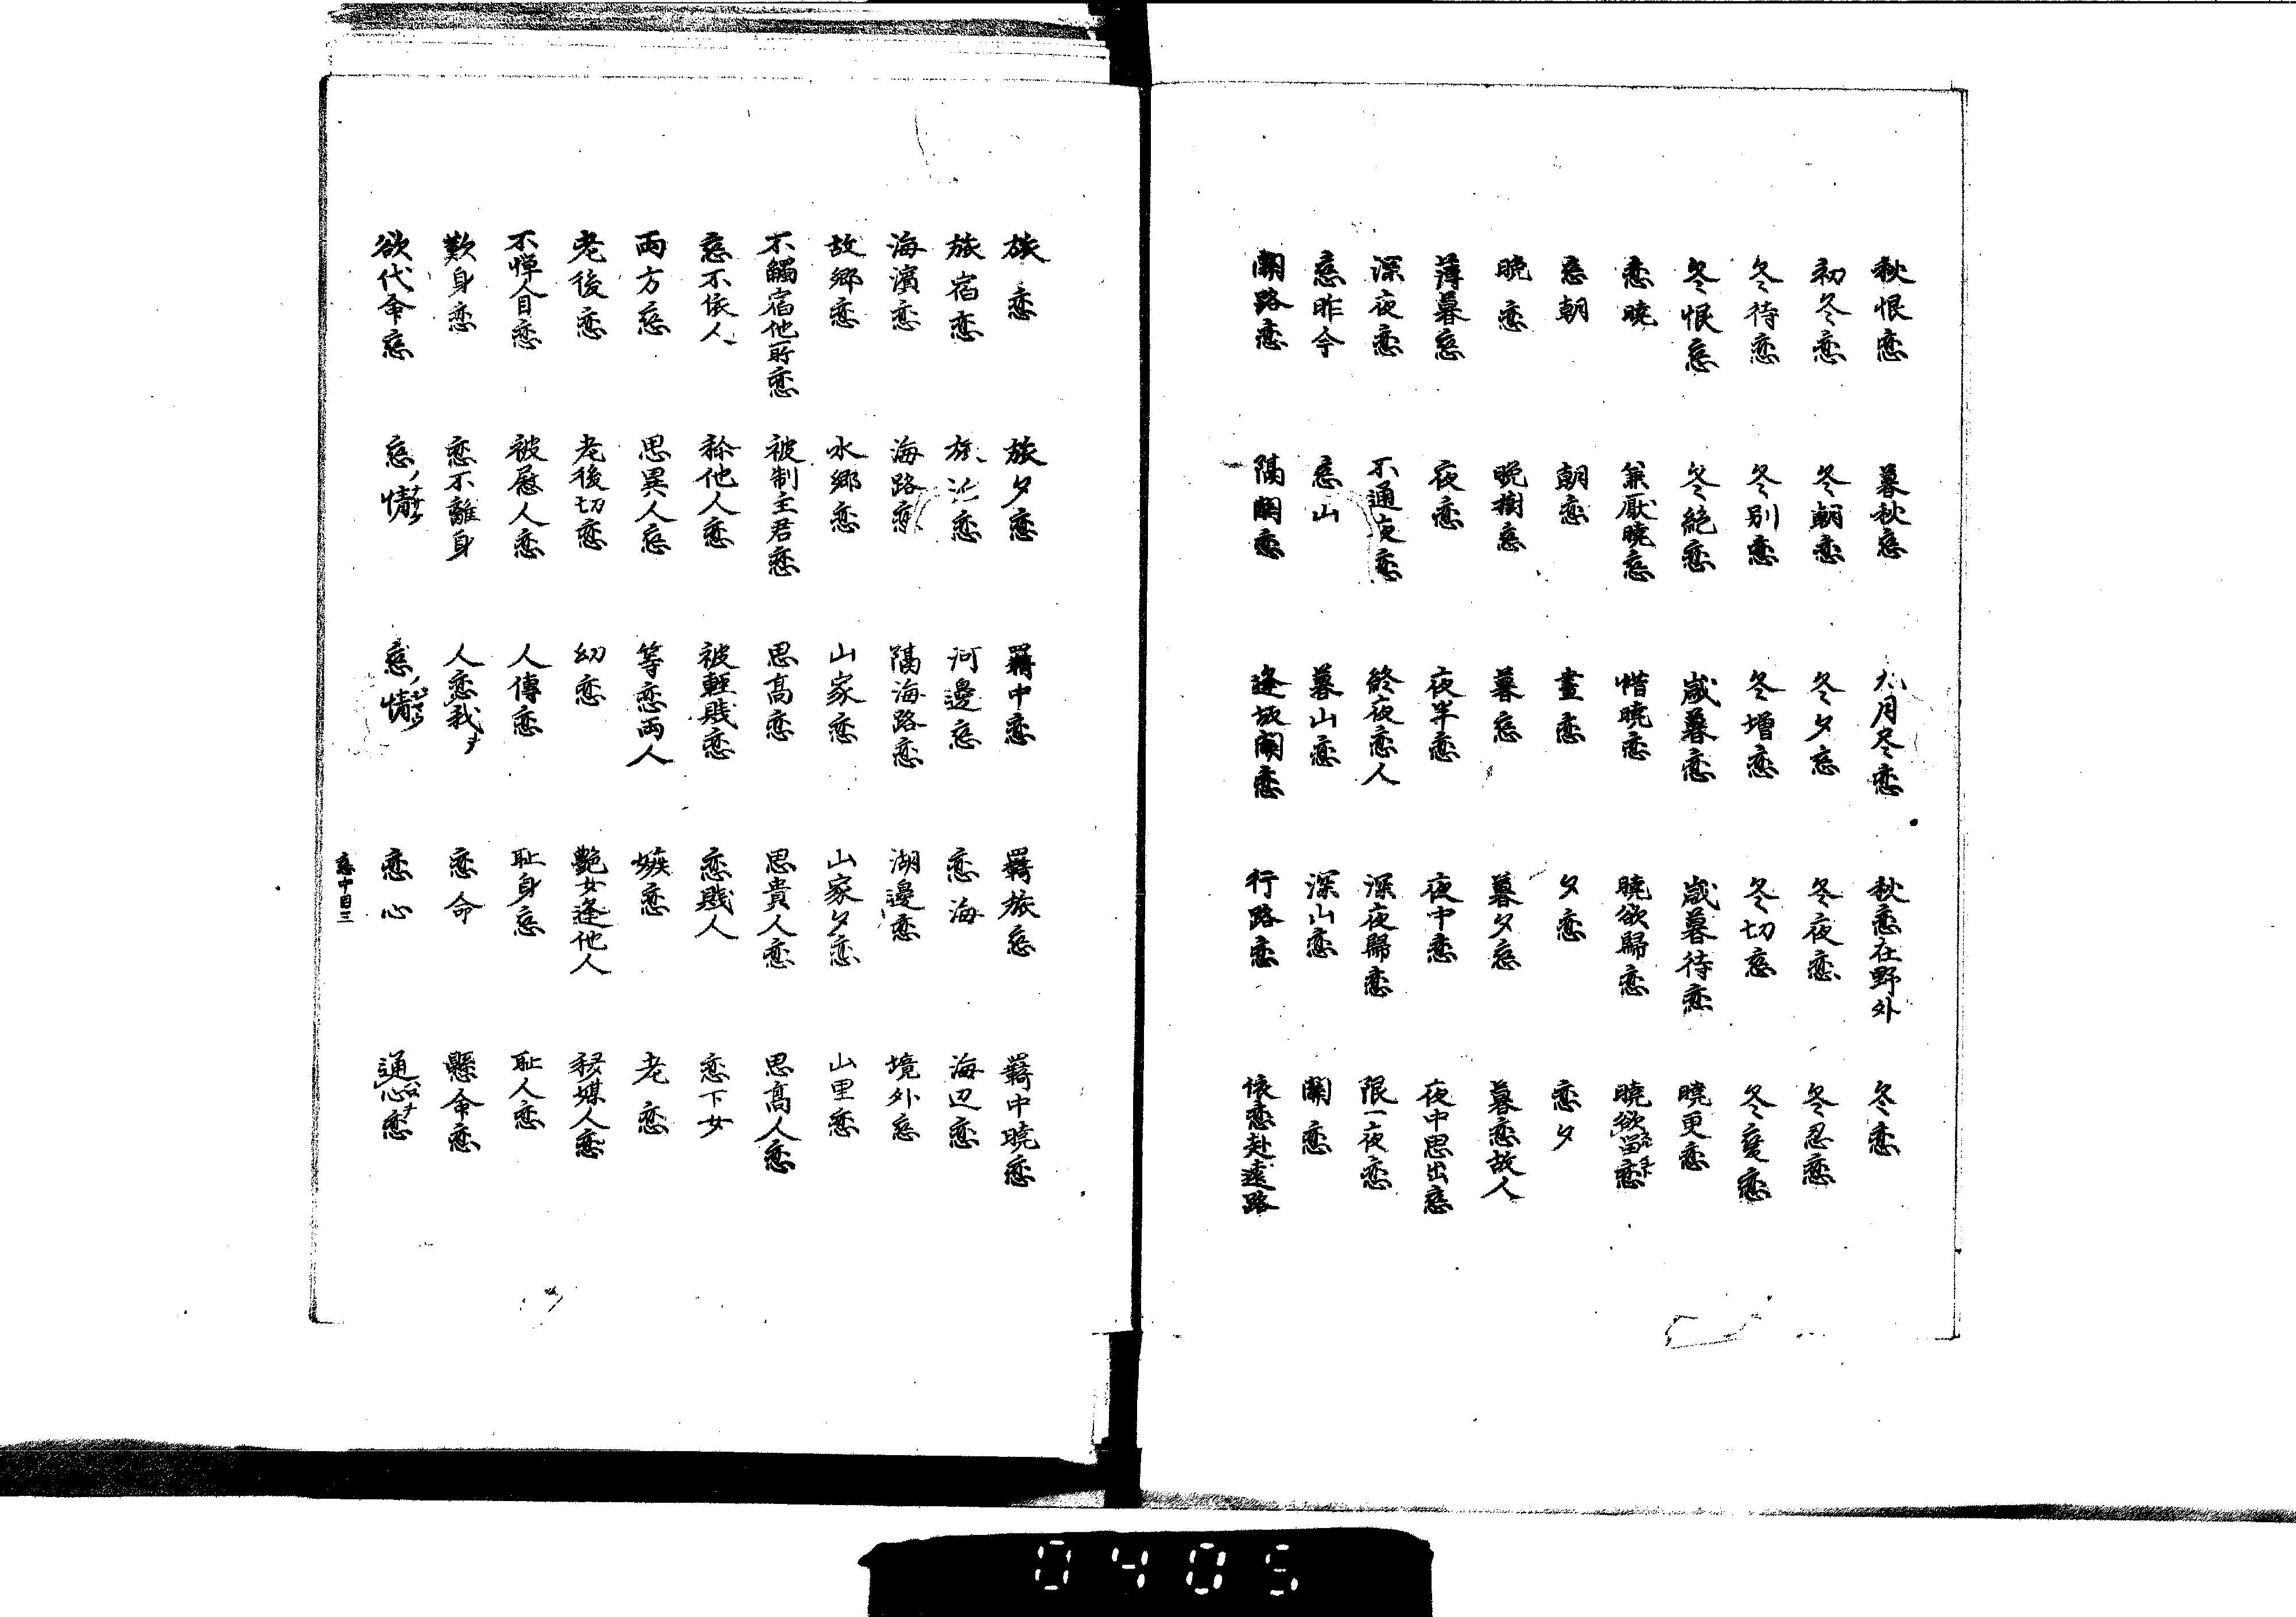 秋恨恋 暮秋恋 九月尽恋 秋恋在野外 冬恋
初冬恋 冬朝恋 冬夕恋 冬夜恋 冬忍恋
冬待恋 冬別恋 冬増恋 冬切恋 冬変恋
冬恨恋 冬絶恋 歳暮恋 歳暮待恋 暁更恋
恋暁 兼厭暁恋 惜暁恋 暁欲帰恋 暁欲留恋
恋朝 朝恋 昼恋 夕恋 恋夕
晩恋 晩樹恋 暮恋 暮夕恋 暮恋故人
薄暮恋 夜恋 夜半恋 夜中恋 夜中思出恋
深夜恋 不通夜恋 終夜恋人 深夜帰恋 限一夜恋
恋昨今 恋山 暮山恋 深山恋 関恋
関路恋 隔関恋 逢坂関恋 行路恋 懐恋赴遠路
旅恋 旅夕恋 羇中恋 羇旅恋 羇中暁恋
旅宿恋 旅泊恋 河邊恋 恋海 海辺恋
海濱恋 海路恋 隔海路恋 湖邊恋 境外恋
故郷恋 水郷恋 山家恋 山家夕恋 山里恋
不觸宿他所恋 被制主君恋 思高恋 思貴人恋 思高人恋
恋不依人 稱他人恋 被軽賤恋 恋賤人 恋下女
両方恋 思異人恋 等恋両人 嫉恋 老恋
老後恋 老後切恋 幼恋 艶女逢他人 媒人恋
不憚人目恋 被慰人恋 人傳恋 恥身恋 恥人恋
歎身恋 恋不離身 人恋我ヲ 恋命 懸命恋
欲代命恋 恋情 恋情 恋心 通心恋
恋中目三
0405